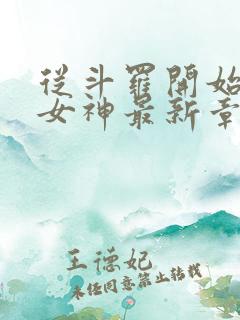 從斗羅開始
女神最新章
王德妃
未经同意禁止转载